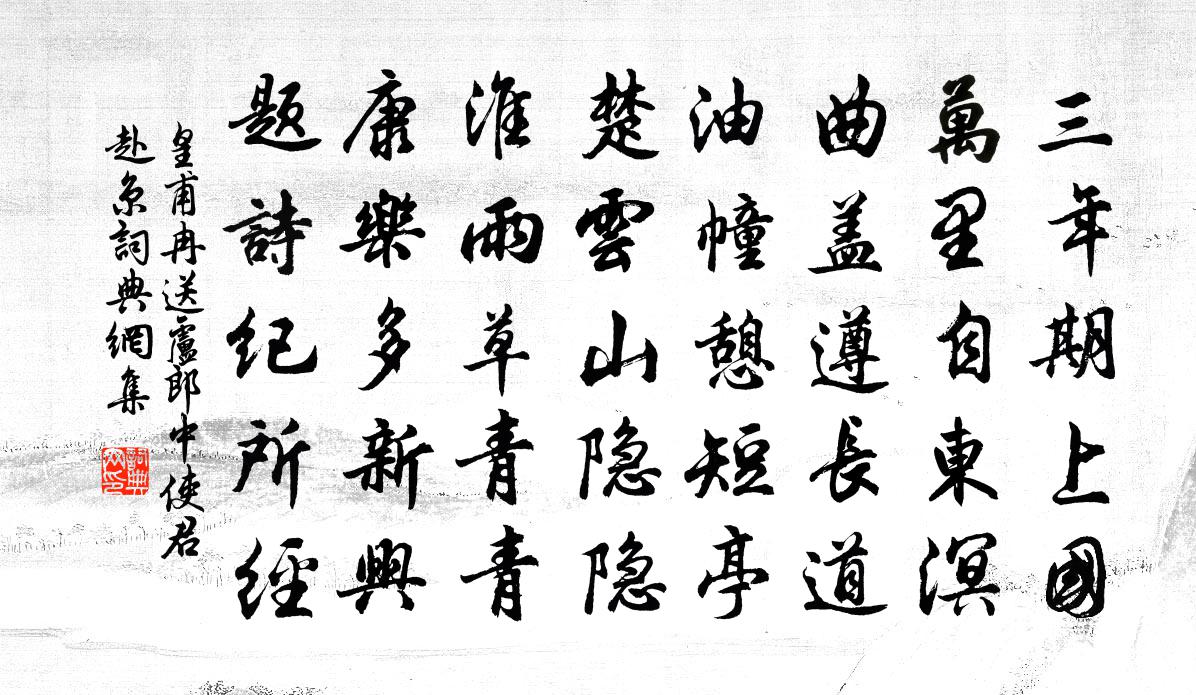 三年期上國
萬里自東溟
曲盖遵長道
油幢憩短亭
楚雲山隐隐
淮雨草青青
康樂多新興
题詩紀所經
皇甫冉送盧郎中使君
赴京詞典網集
詞典网印